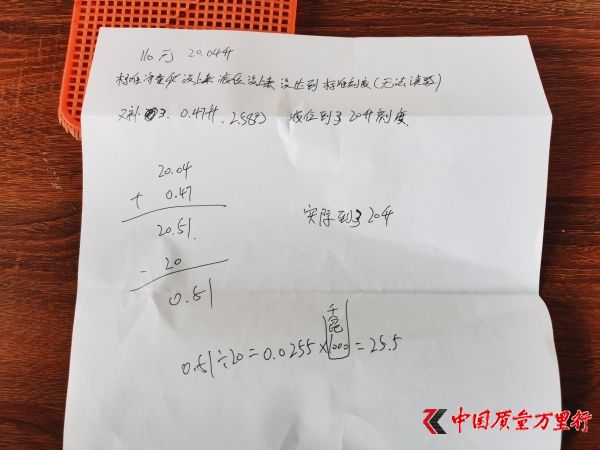 110元 20.04升
标准净容器 没上来 液位没上来 没达到 标准刻度(无法读数)
又补了. 0.47升. 2.58元 液位到了20升刻度.
20.04
+ 0.47
20.51.
- 20
0.51
实际到了20升
0.51÷20=0.0255×1000=25.5
中国质量万里行